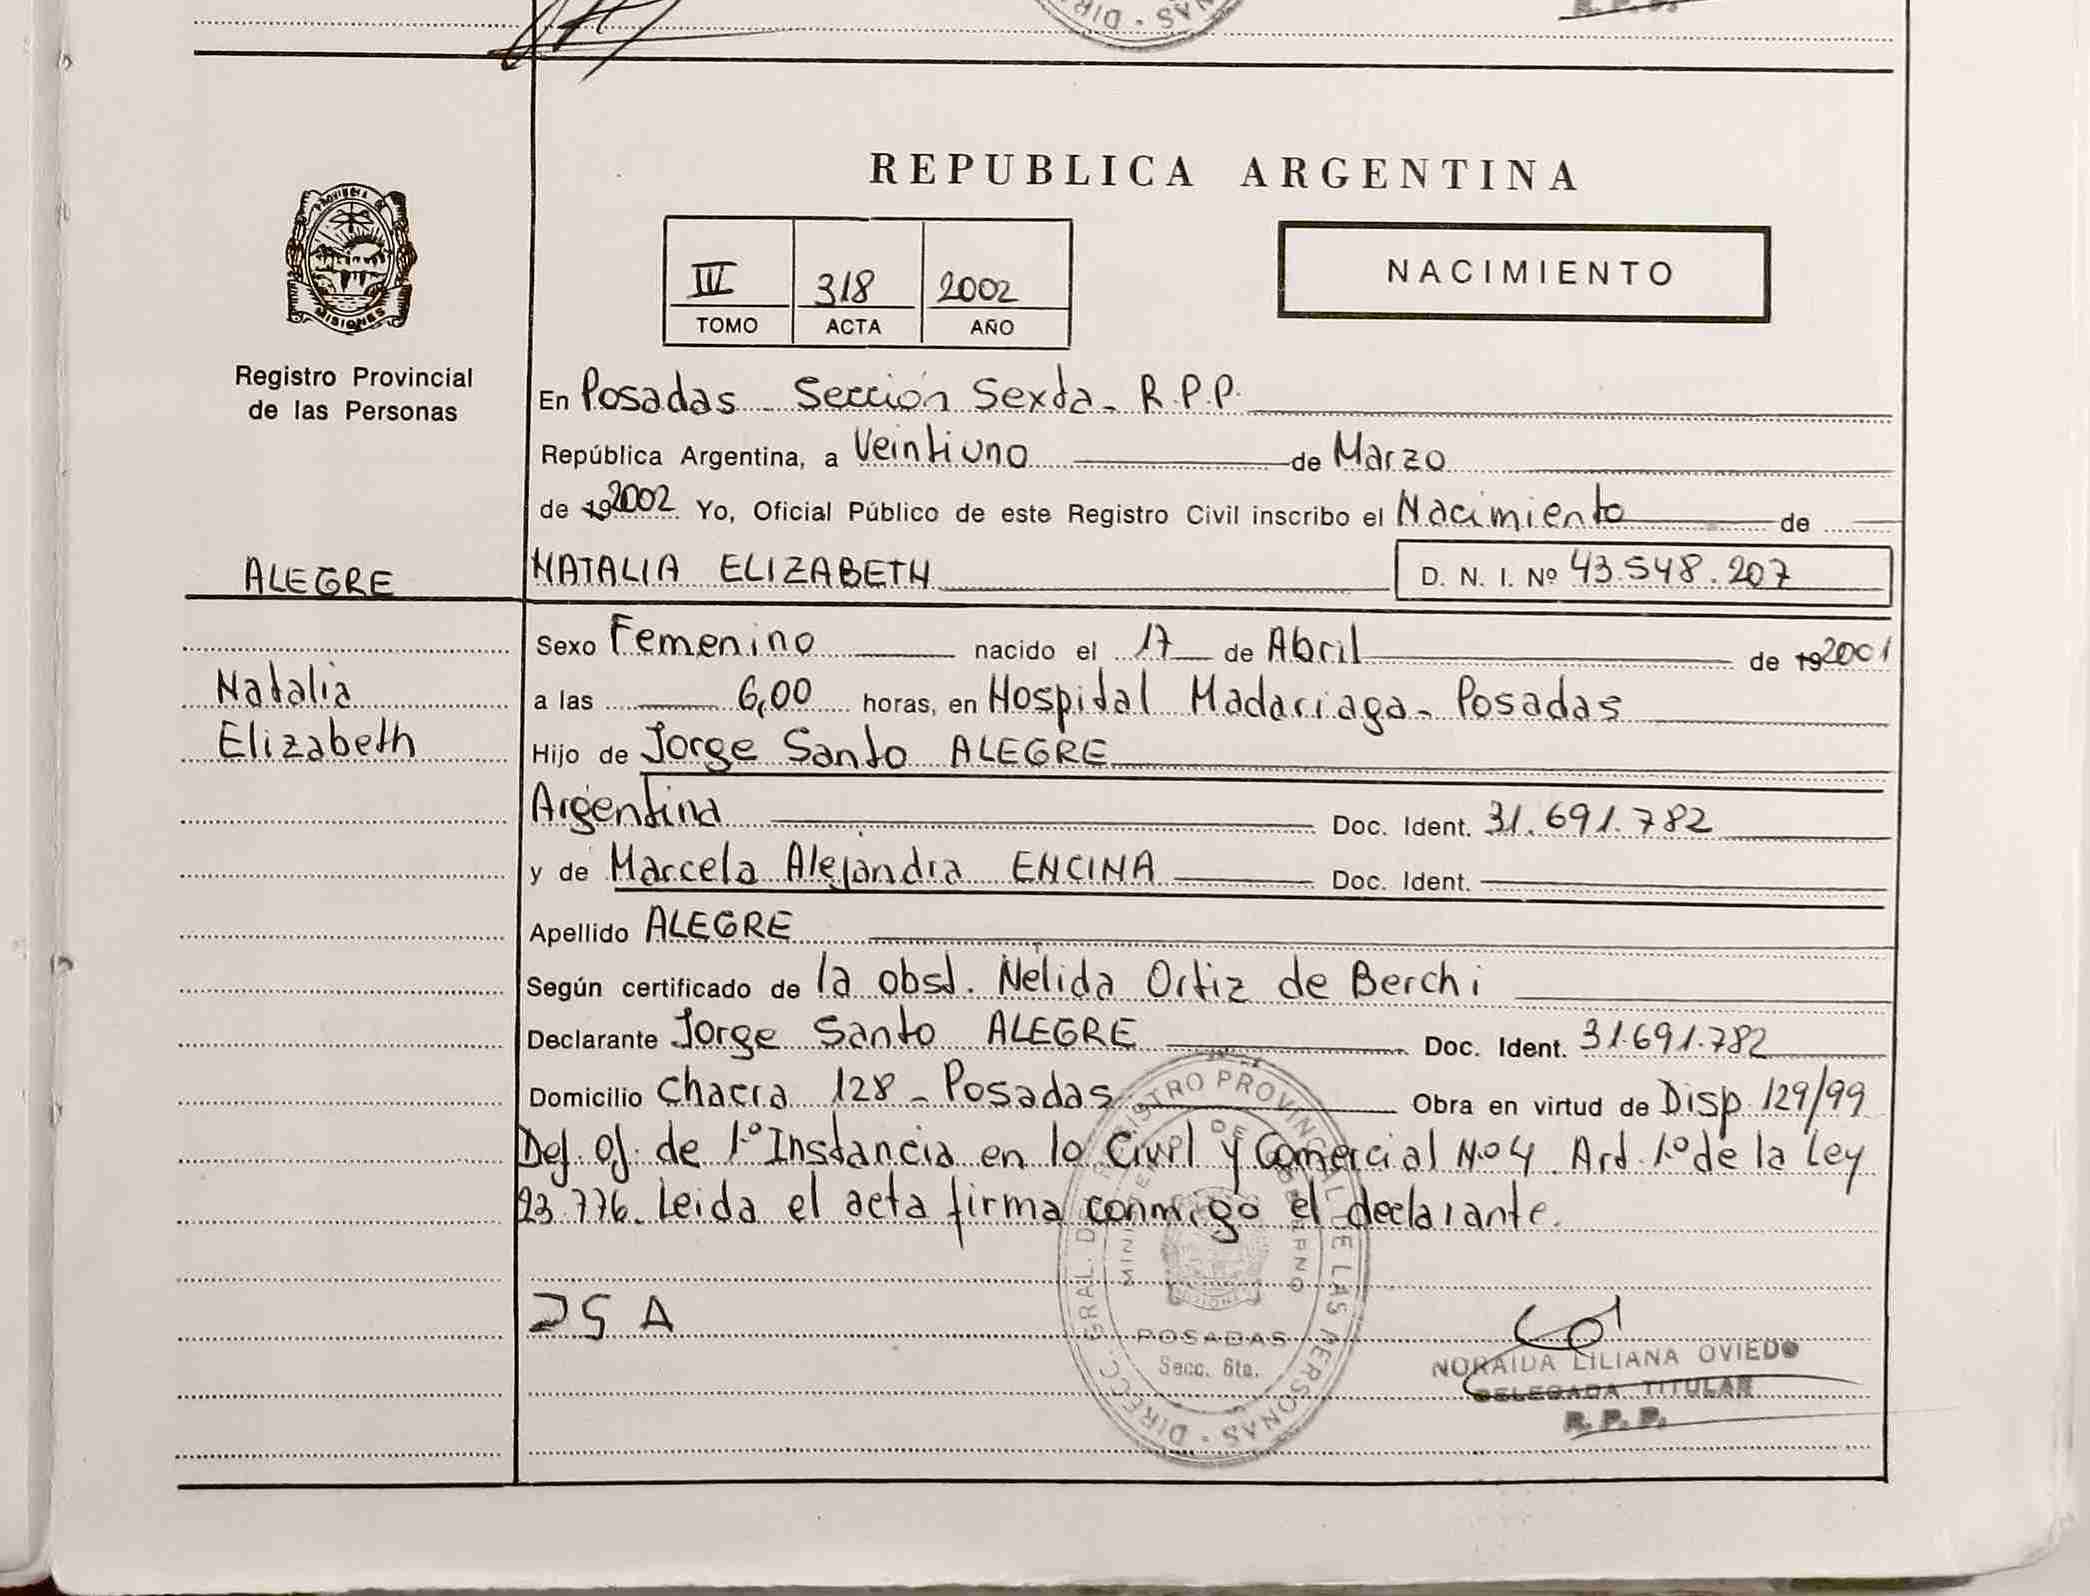 REPUBLICA ARGENTINA
PROVINCIA DE
MISIONES
III 318 2002
TOMO ACTA AÑO
NACIMIENTO
Registro Provincial
de las Personas
En Posadas - Sección Sexta - R.P.P.
República Argentina, a Veintiuno de Marzo
de 192002 Yo, Oficial Público de este Registro Civil inscribo el Nacimiento de
ALEGRE
NATALIA ELIZABETH D. N. I. Nº 43.548.207
Sexo Femenino nacido el 17 de Abril de 192001
Natalia
Elizabeth
a las 6,00 horas, en Hospital Madariaga - Posadas
Hijo de Jorge Santo ALEGRE
Argentina Doc. Ident. 31.691.782
y de Marcela Alejandra ENCINA Doc. Ident.
Apellido ALEGRE
Según certificado de la obst. Nélida Ortiz de Berchi
Declarante Jorge Santo ALEGRE Doc. Ident. 31.691.782
Domicilio Chacra 128 - Posadas Obra en virtud de Disp. 129/99
Def. Of. de 1º Instancia en lo Civil y Comercial Nº 4. Art. 1º de la Ley
23.776. Leida el acta firma conmigo el declarante.
JSA
DIRECC. GRAL. DE REGISTRO PROVINCIAL DE LAS PERSONAS
MINISTERIO DE GOBIERNO
MISIONES
POSADAS
Secc. 6ta.
NORAIDA LILIANA OVIEDO
DELEGADA TITULAR
R. P. P.